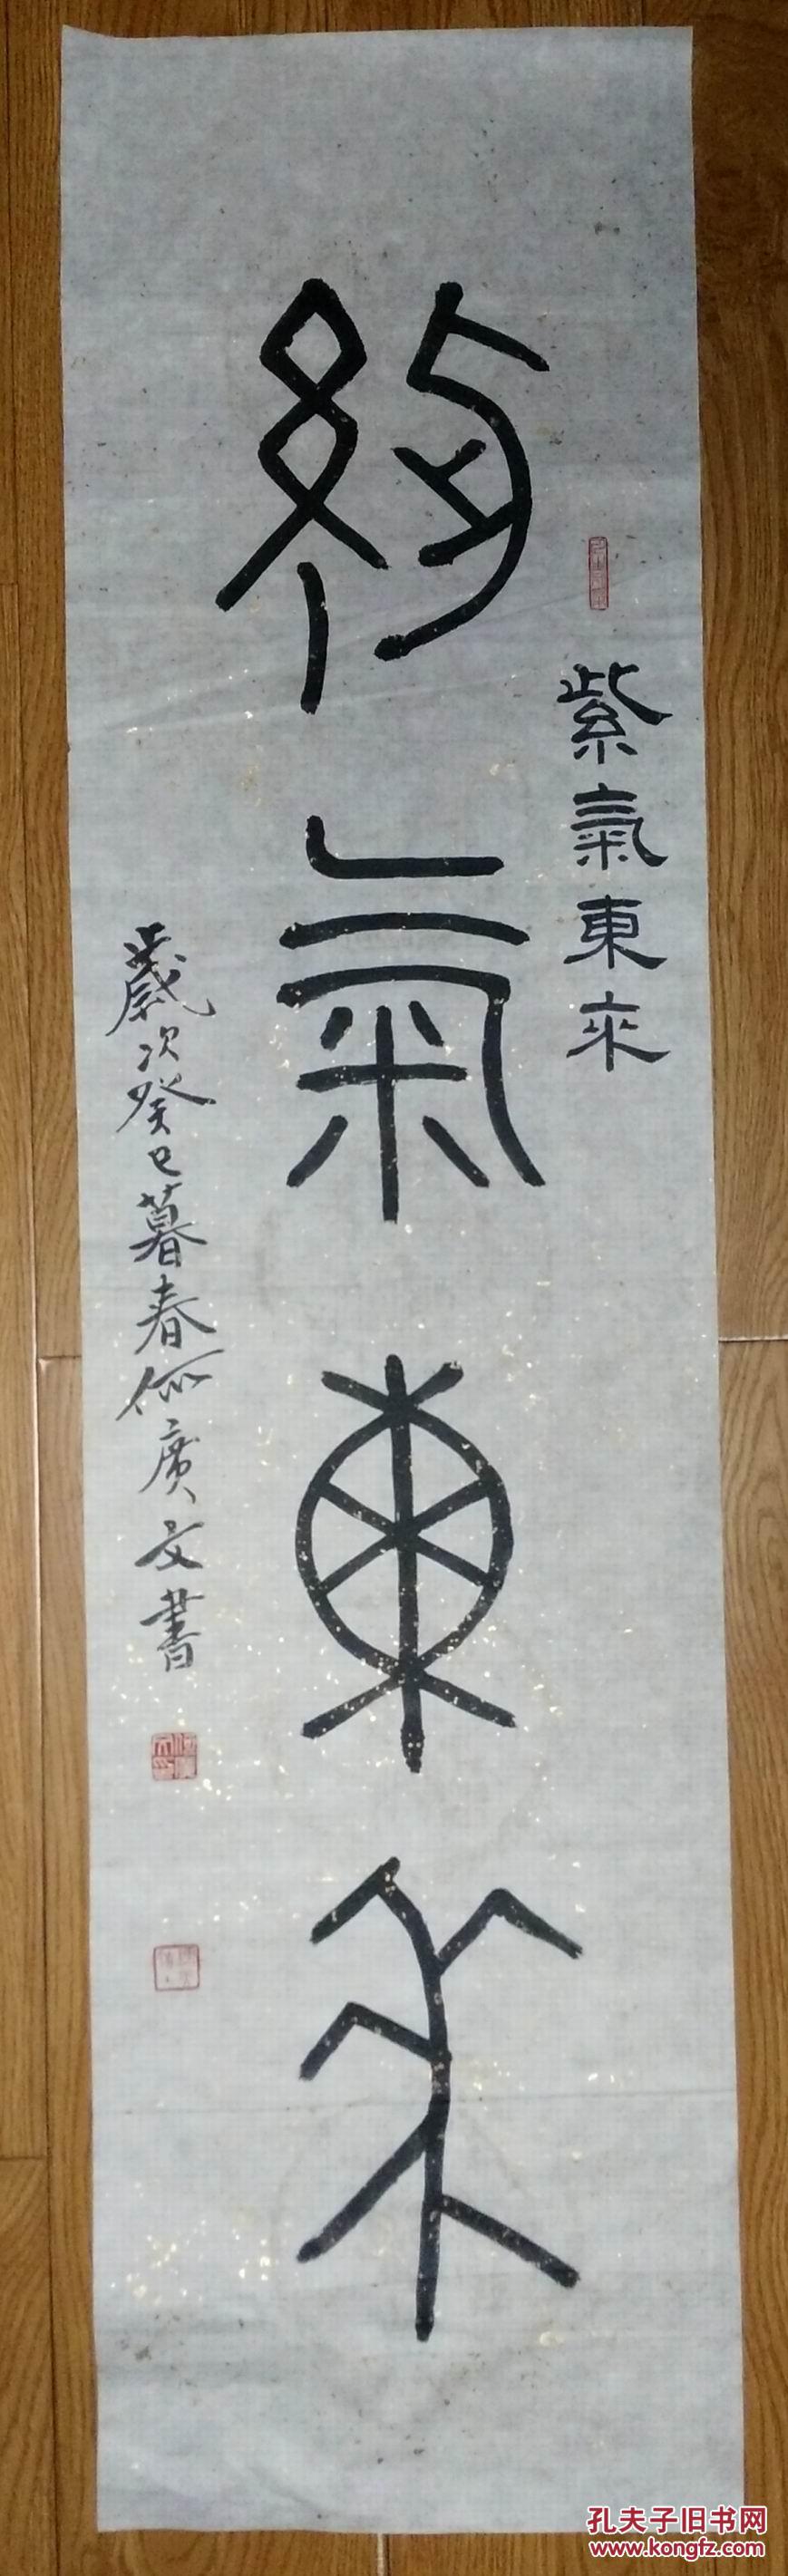 紫氣東來
紫氣東來
歲次癸巳暮春何廣文書
孔夫子旧书网
www.kongfz.com